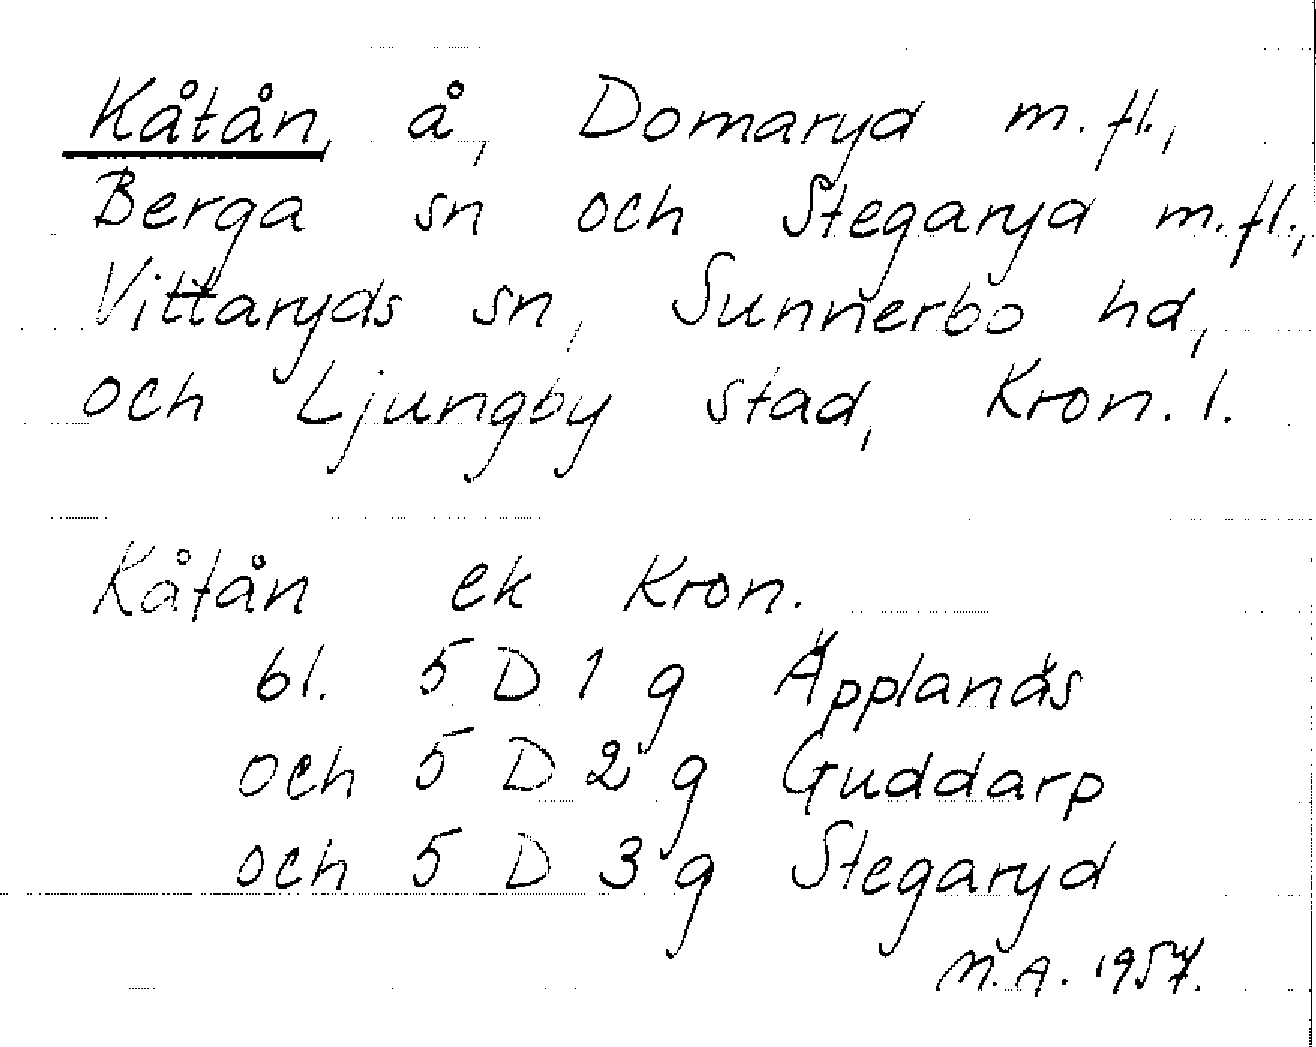 Kåtån, å, Domaryd m.fl.,
Berga sn och Stegaryd m.fl.,
Vittaryds sn, Sunnerbo hd,
och Ljungby stad, Kron. l.
Kåtån ek Kron.
bl. 5 D 1 g Äpplands
och 5 D 2 g Guddarp
och 5 D 3 g Stegaryd
M.A. 1957.